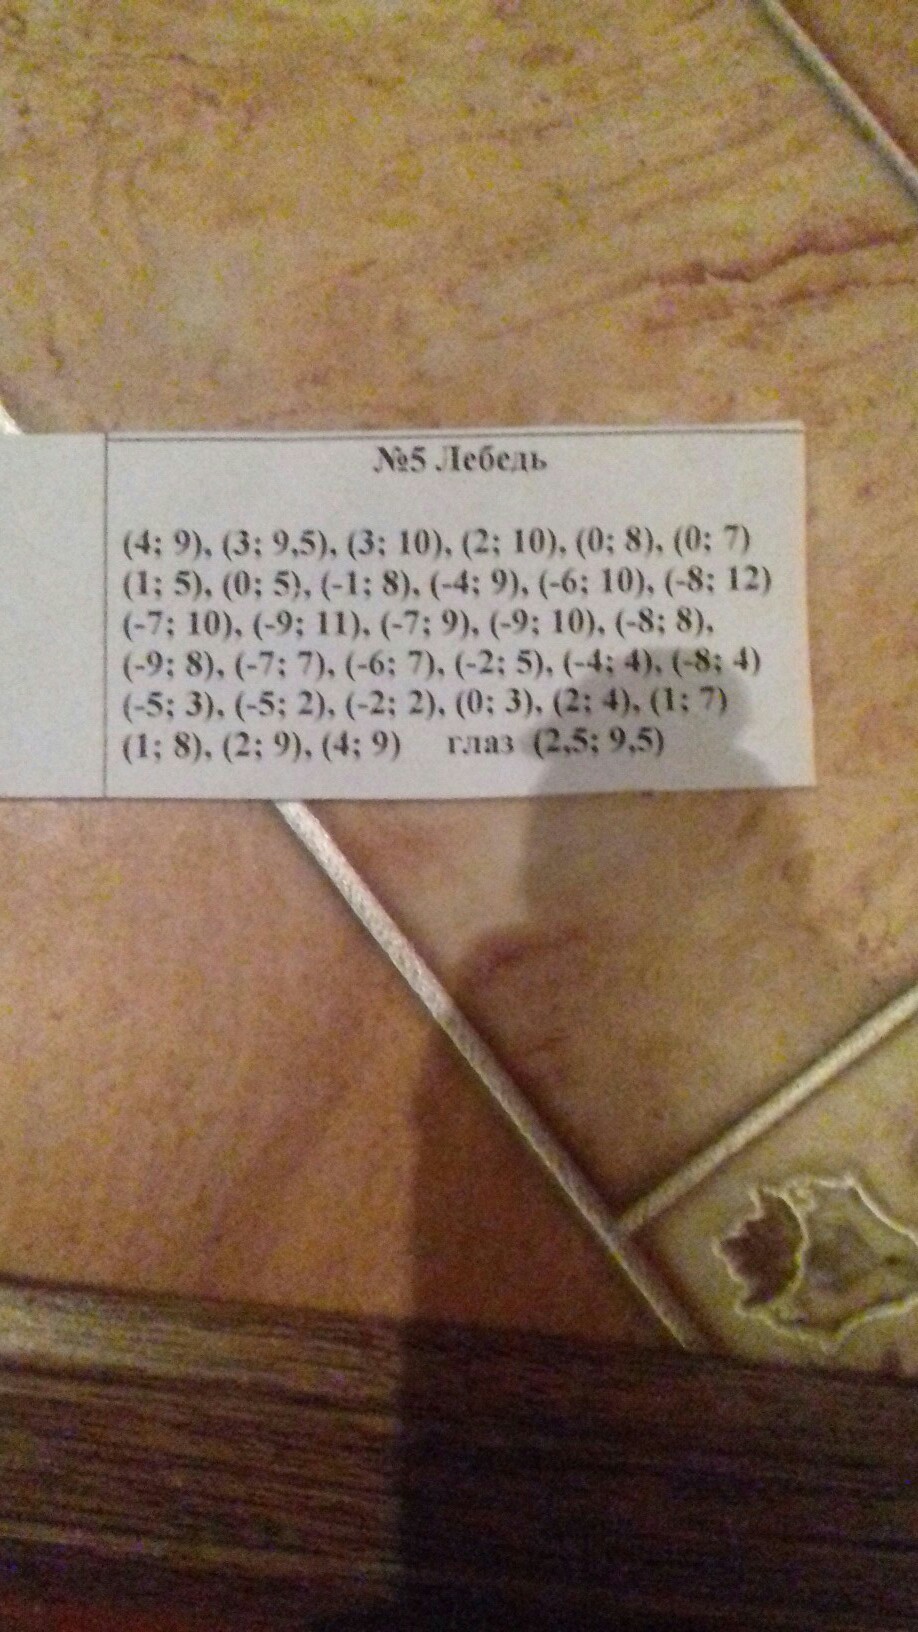 №5 Лебедь
(4; 9), (3; 9,5), (3; 10), (2; 10), (0; 8), (0; 7)
(1; 5), (0; 5), (-1; 8), (-4; 9), (-6; 10), (-8; 12)
(-7; 10), (-9; 11), (-7; 9), (-9; 10), (-8; 8),
(-9; 8), (-7; 7), (-6; 7), (-2; 5), (-4; 4), (-8; 4)
(-5; 3), (-5; 2), (-2; 2), (0; 3), (2; 4), (1; 7)
(1; 8), (2; 9), (4; 9) глаз (2,5; 9,5)